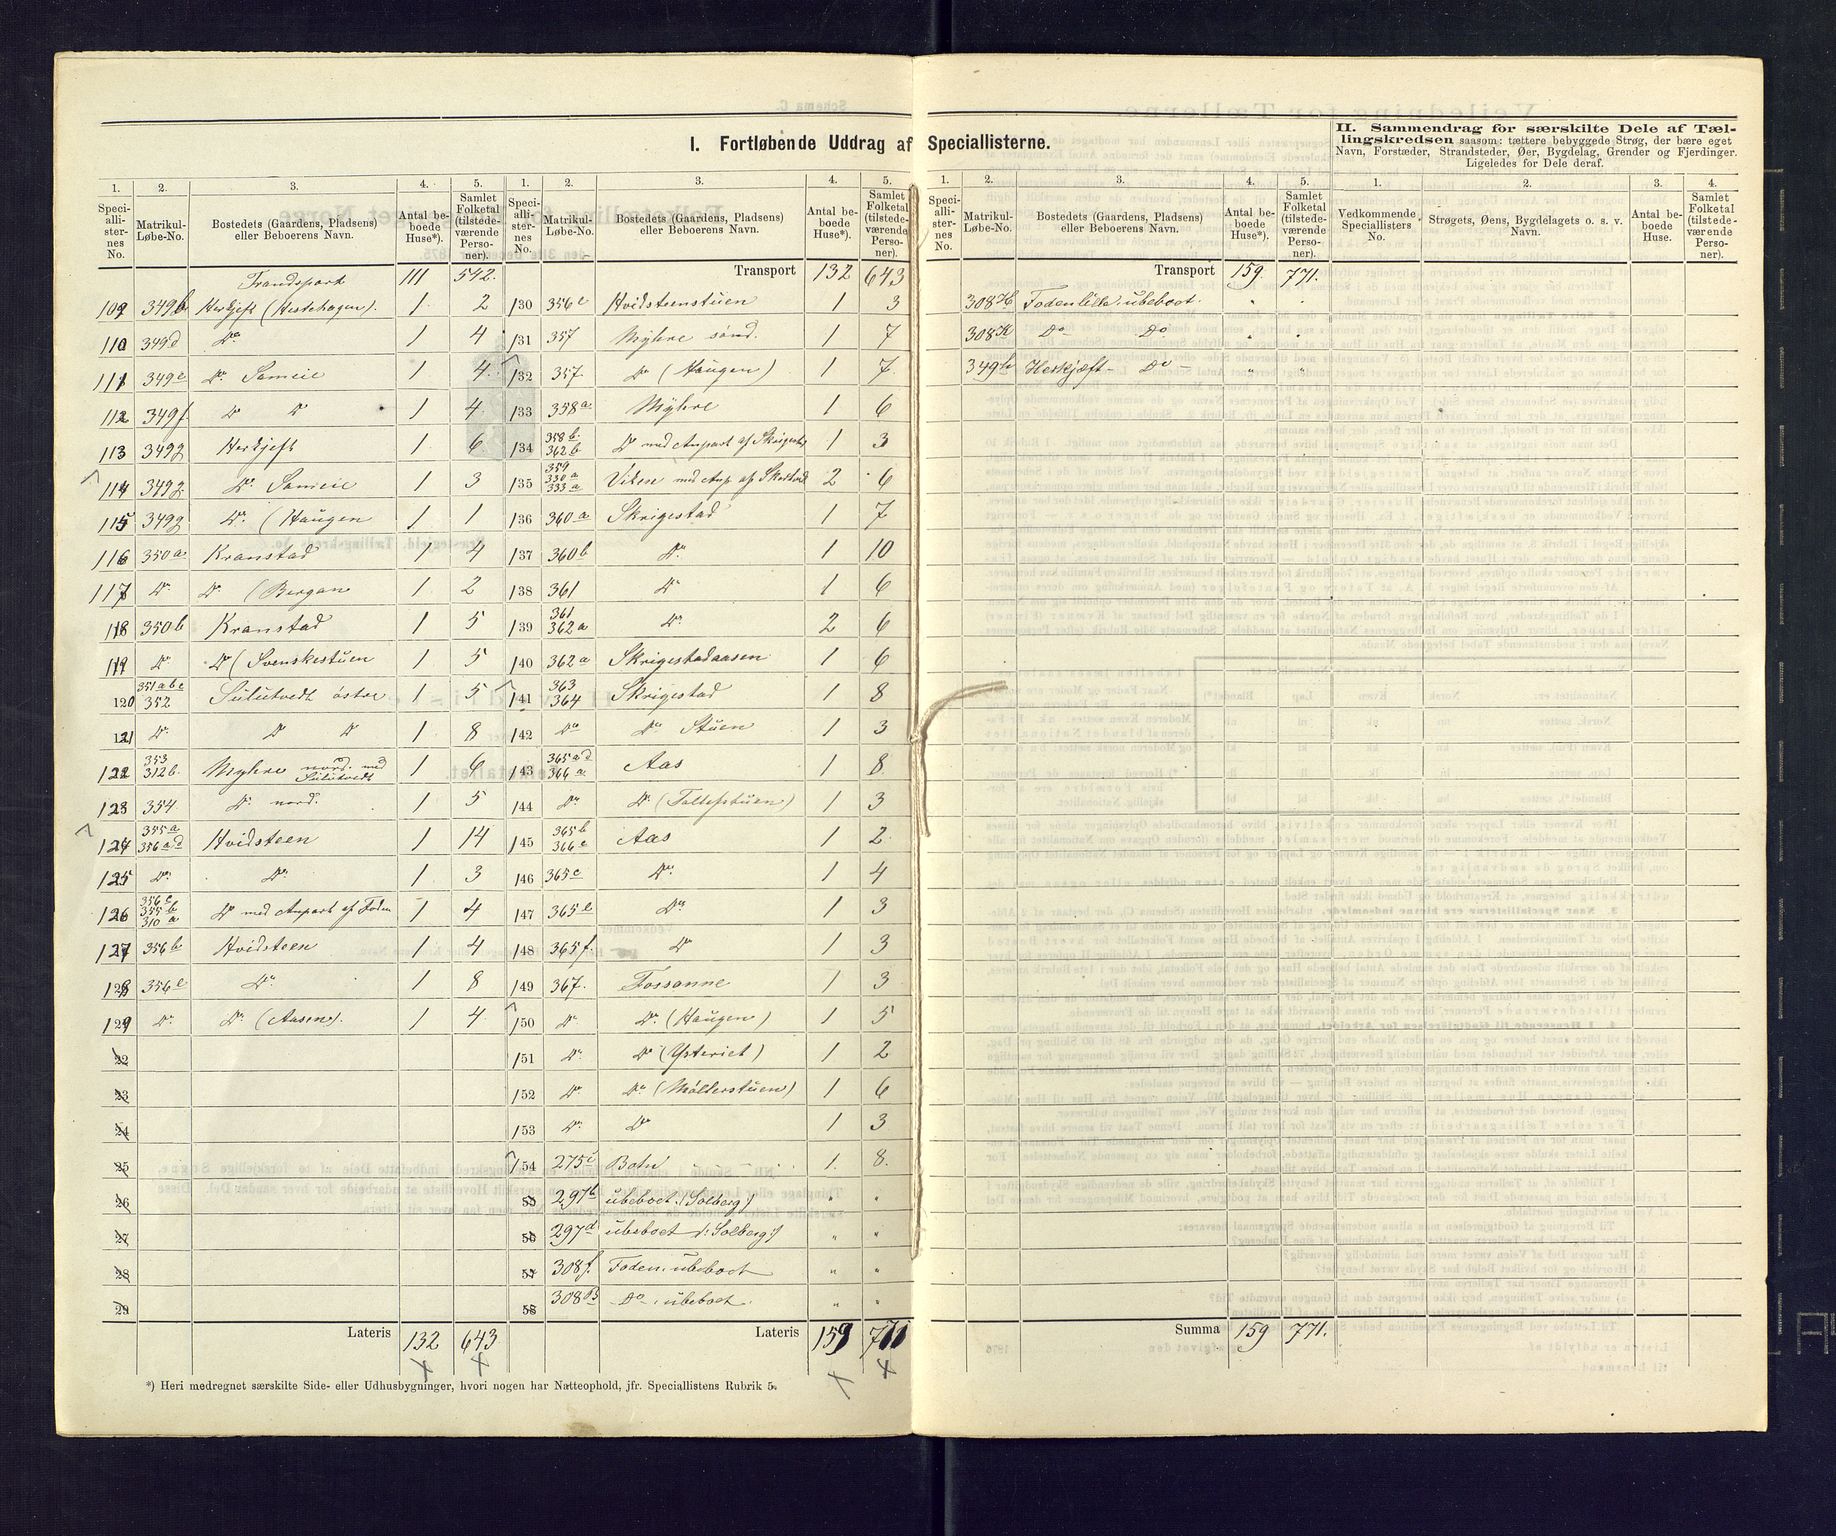 I. Fortløbende Uddrag af Speciallisterne.
II. Sammendrag for særskilte Dele af Tællingskredsen saasom: tættere bebyggede Strøg, der bære eget
Navn, Forstæder, Strandsteder, Øer, Bygdelag, Grender og Fjerdinger.
Ligeledes for Dele deraf.
1. 2. 3. 4. 5.
Speciallisternes No. Matrikul-Løbe-No. Bostedets (Gaardens, Pladsens) eller Beboerens Navn. Antal beboede Huse*). Samlet Folketal (tilstedeværende Personer).
Trandsport 111 542.
109 349b Herkjeft (Hestehagen). 1 2
110 349d Do 1 4
111 349e Do Sameie 1 4
112 349f Do Do 1 4
113 349g Herkjeft 1 6
114 349g Do Sameie 1 3
115 349g Do (Haugen 1 1
116 350a Kranstad 1 4
117 Do Do (Bergan 1 2
118 350b Kranstad 1 5
119 Do Do (Svenskestuen 1 5
120 351abc 352 Sulutvedt østre 1 5
121 Do Do Do 1 8
122 353 312b. Myhre nord. med Sulutvedt 1 6
123 354 Do nord. 1 5
124 355a 356ad Hvidsteen 1 14
125 Do Do 1 3
126 356c 355b 310a Do med Anpart af Foden 1 4
127 356b Hvidsteen 1 4
128 356e Do 1 8
129 Do Do (Aasen). 1 4
22
23
24
25
26
27
28
29
Lateris 132 643
1. 2. 3. 4. 5.
Speciallisternes No. Matrikul-Løbe-No. Bostedets (Gaardens, Pladsens) eller Beboerens Navn. Antal beboede Huse*). Samlet Folketal (tilstedeværende Personer).
Transport 132 643
130 356c Hvidsteenstuen 1 3
131 357 Myhre sønd. 1 7
132 357. Do (Haugen) 1 7
133 358a Myhre 1 6
134 358b. 362b Do med Anpart af Skrigestad 1 3
135 359 330a 333a Viken med Anp. af 2 6
136 360a Skrigestad 1 7
137 360b Do 1 10
138 361 Do 1 6
139 361 362a Do 2 6
140 362a Skrigestadaasen 1 6
141 363 364 Skrigestad 1 8
142 Do Do Stuen 1 3
143 365ad 366a Aas 1 8
144 Do Do (Tollefstuen) 1 3
145 365b 366c Aas 1 2
146 365c Do 1 4
147 365e Do 1 3
148 365f Do 1 3
149 367. Fossanne 1 3
150 Do Do (Haugen) 1 5
151 Do Do (Ysteriet) 1 2
152 Do Do (Møllerstuen) 1 6
153 Do Do 1 3
154 275i Botn 1. 8.
55 297b ubeboet (Solberg) " "
56 297d ubeboet (:Solberg:) " "
57 308f. Foden. ubeboet " "
58 308B Do. ubeboet. " "
Lateris 159 771
1. 2. 3. 4. 5.
Speciallisternes No. Matrikul-Løbe-No. Bostedets (Gaardens, Pladsens) eller Beboerens Navn. Antal beboede Huse*). Samlet Folketal (tilstedeværende Personer).
Transport 159 771.
308H Fodenlille. ubeboet. " "
308K Do Do " "
349h Herkjæft - Do - " "
Summa 159 771.
1. 2. 3. 4.
Vedkommende Speciallisters No. Strøgets, Øens, Bygdelagets o. s. v. Navn. Antal beboede Huse. Samlet Folketal (tilstedeværende Personer).
*) Heri medregnet særskilte Side- eller Udhusbygninger, hvori nogen har Natteophold, jfr. Speciallistens Rubrik 5.